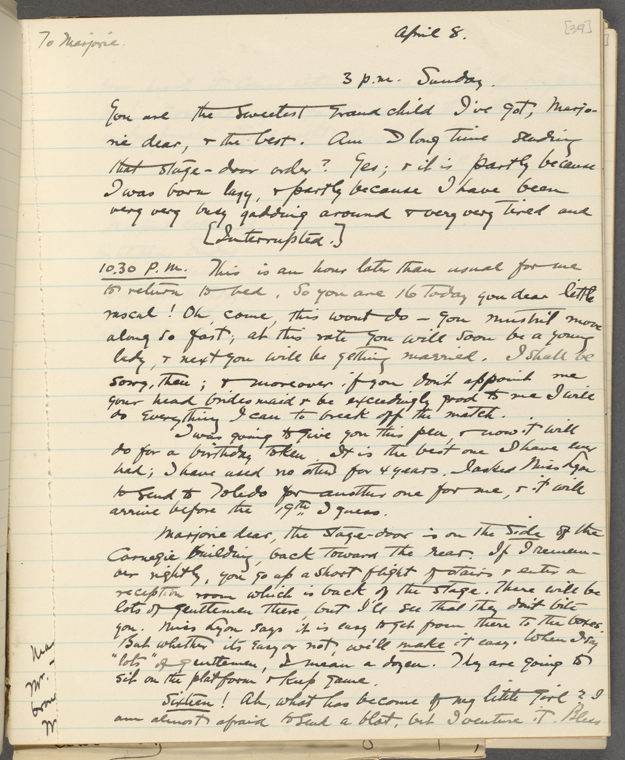 To Marjorie.
April 8.
[39]
3 p.m. Sunday.
You are the sweetest Grandchild I've got, Marjo-
rie dear, & the best. Am I long time sending
that stage-door order? Yes; & it is partly because
I was born lazy, & partly because I have been
very very busy gadding around & very very tired and
[Interrupted.]
10.30 P.M. This is an hour later than usual for me
to return to bed. So you are 16 today you dear little
rascal! Oh, come, this wont do — you mustn't move
along so fast; at this rate you will soon be a young
lady, & next you will be getting married. I shall be
sorry, then; & moreover if you don't appoint me
your head bridesmaid & be exceedingly good to me I will
do everything I can to break off the match.
I was going to give you this pen, & now it will
do for a birthday token. It is the best one I have ever
had; I have used no other for 4 years. I asked Miss Lyon
to send to Toledo for another one for me, & it will
arrive before the 19th I guess.
Marjorie dear, the stage-door is on the side of the
Carnegie building, back toward the rear. If I remem-
ber rightly, you go up a short flight of stairs & enter a
reception room which is back of the stage. There will be
lots of gentlemen there, but I'll see that they don't bite
you. Miss Lyon says it is easy to get from there to the boxes.
But whether it's easy or not, we'll make it easy. When I say
"lots" of gentlemen, I mean a dozen. They are going to
sit on the platform & keep game.
Sixteen! Ah, what has become of my little girl? I
am almost afraid to send a blot, but I venture it. Bless
Mr.